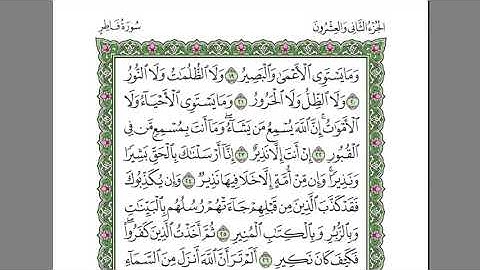 الجزء الثاني والعشرون
سورة فاطر
وَمَا يَسْتَوِى ٱلْأَعْمَىٰ وَٱلْبَصِيرُ ١٩ وَلَا ٱلظُّلُمَٰتُ وَلَا ٱلنُّورُ
٢٠ وَلَا ٱلظِّلُّ وَلَا ٱلْحَرُورُ ٢١ وَمَا يَسْتَوِى ٱلْأَحْيَآءُ وَلَا
ٱلْأَمْوَٰتُ إِنَّ ٱللَّهَ يُسْمِعُ مَن يَشَآءُ وَمَآ أَنتَ بِمُسْمِعٍ مَّن فِى
ٱلْقُبُورِ ٢٢ إِنْ أَنتَ إِلَّا نَذِيرٌ ٢٣ إِنَّآ أَرْسَلْنَٰكَ بِٱلْحَقِّ بَشِيرًا
وَنَذِيرًا وَإِن مِّنْ أُمَّةٍ إِلَّا خَلَا فِيهَا نَذِيرٌ ٢٤ وَإِن يُكَذِّبُوكَ
فَقَدْ كَذَّبَ ٱلَّذِينَ مِن قَبْلِهِمْ جَآءَتْهُمْ رُسُلُهُم بِٱلْبَيِّنَٰتِ
وَبِٱلزُّبُرِ وَبِٱلْكِتَٰبِ ٱلْمُنِيرِ ٢٥ ثُمَّ أَخَذْتُ ٱلَّذِينَ كَفَرُوا۟
فَكَيْفَ كَانَ نَكِيرِ ٢٦ أَلَمْ تَرَ أَنَّ ٱللَّهَ أَنزَلَ مِنَ ٱلسَّمَآءِ